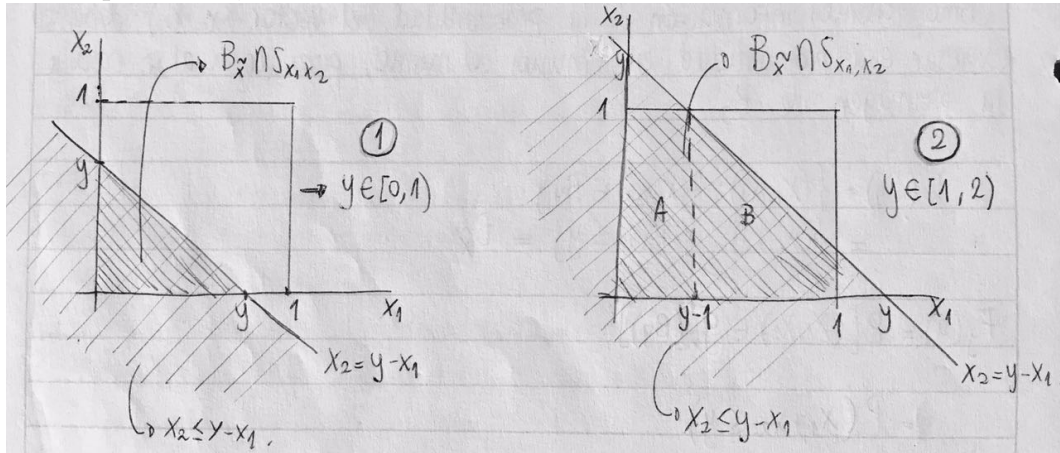 X₂
B_x̰ ∩ S_{X₁,X₂}
1
①
y
→ y ∈ [0,1)
y
1
X₁
X₂ = y - X₁
X₂ ≤ y - X₁.
X₂
y
B_x̰ ∩ S_{X₁,X₂}
1
②
y ∈ [1,2)
A
B
y-1
1
y
X₁
X₂ = y - X₁
X₂ ≤ y - X₁